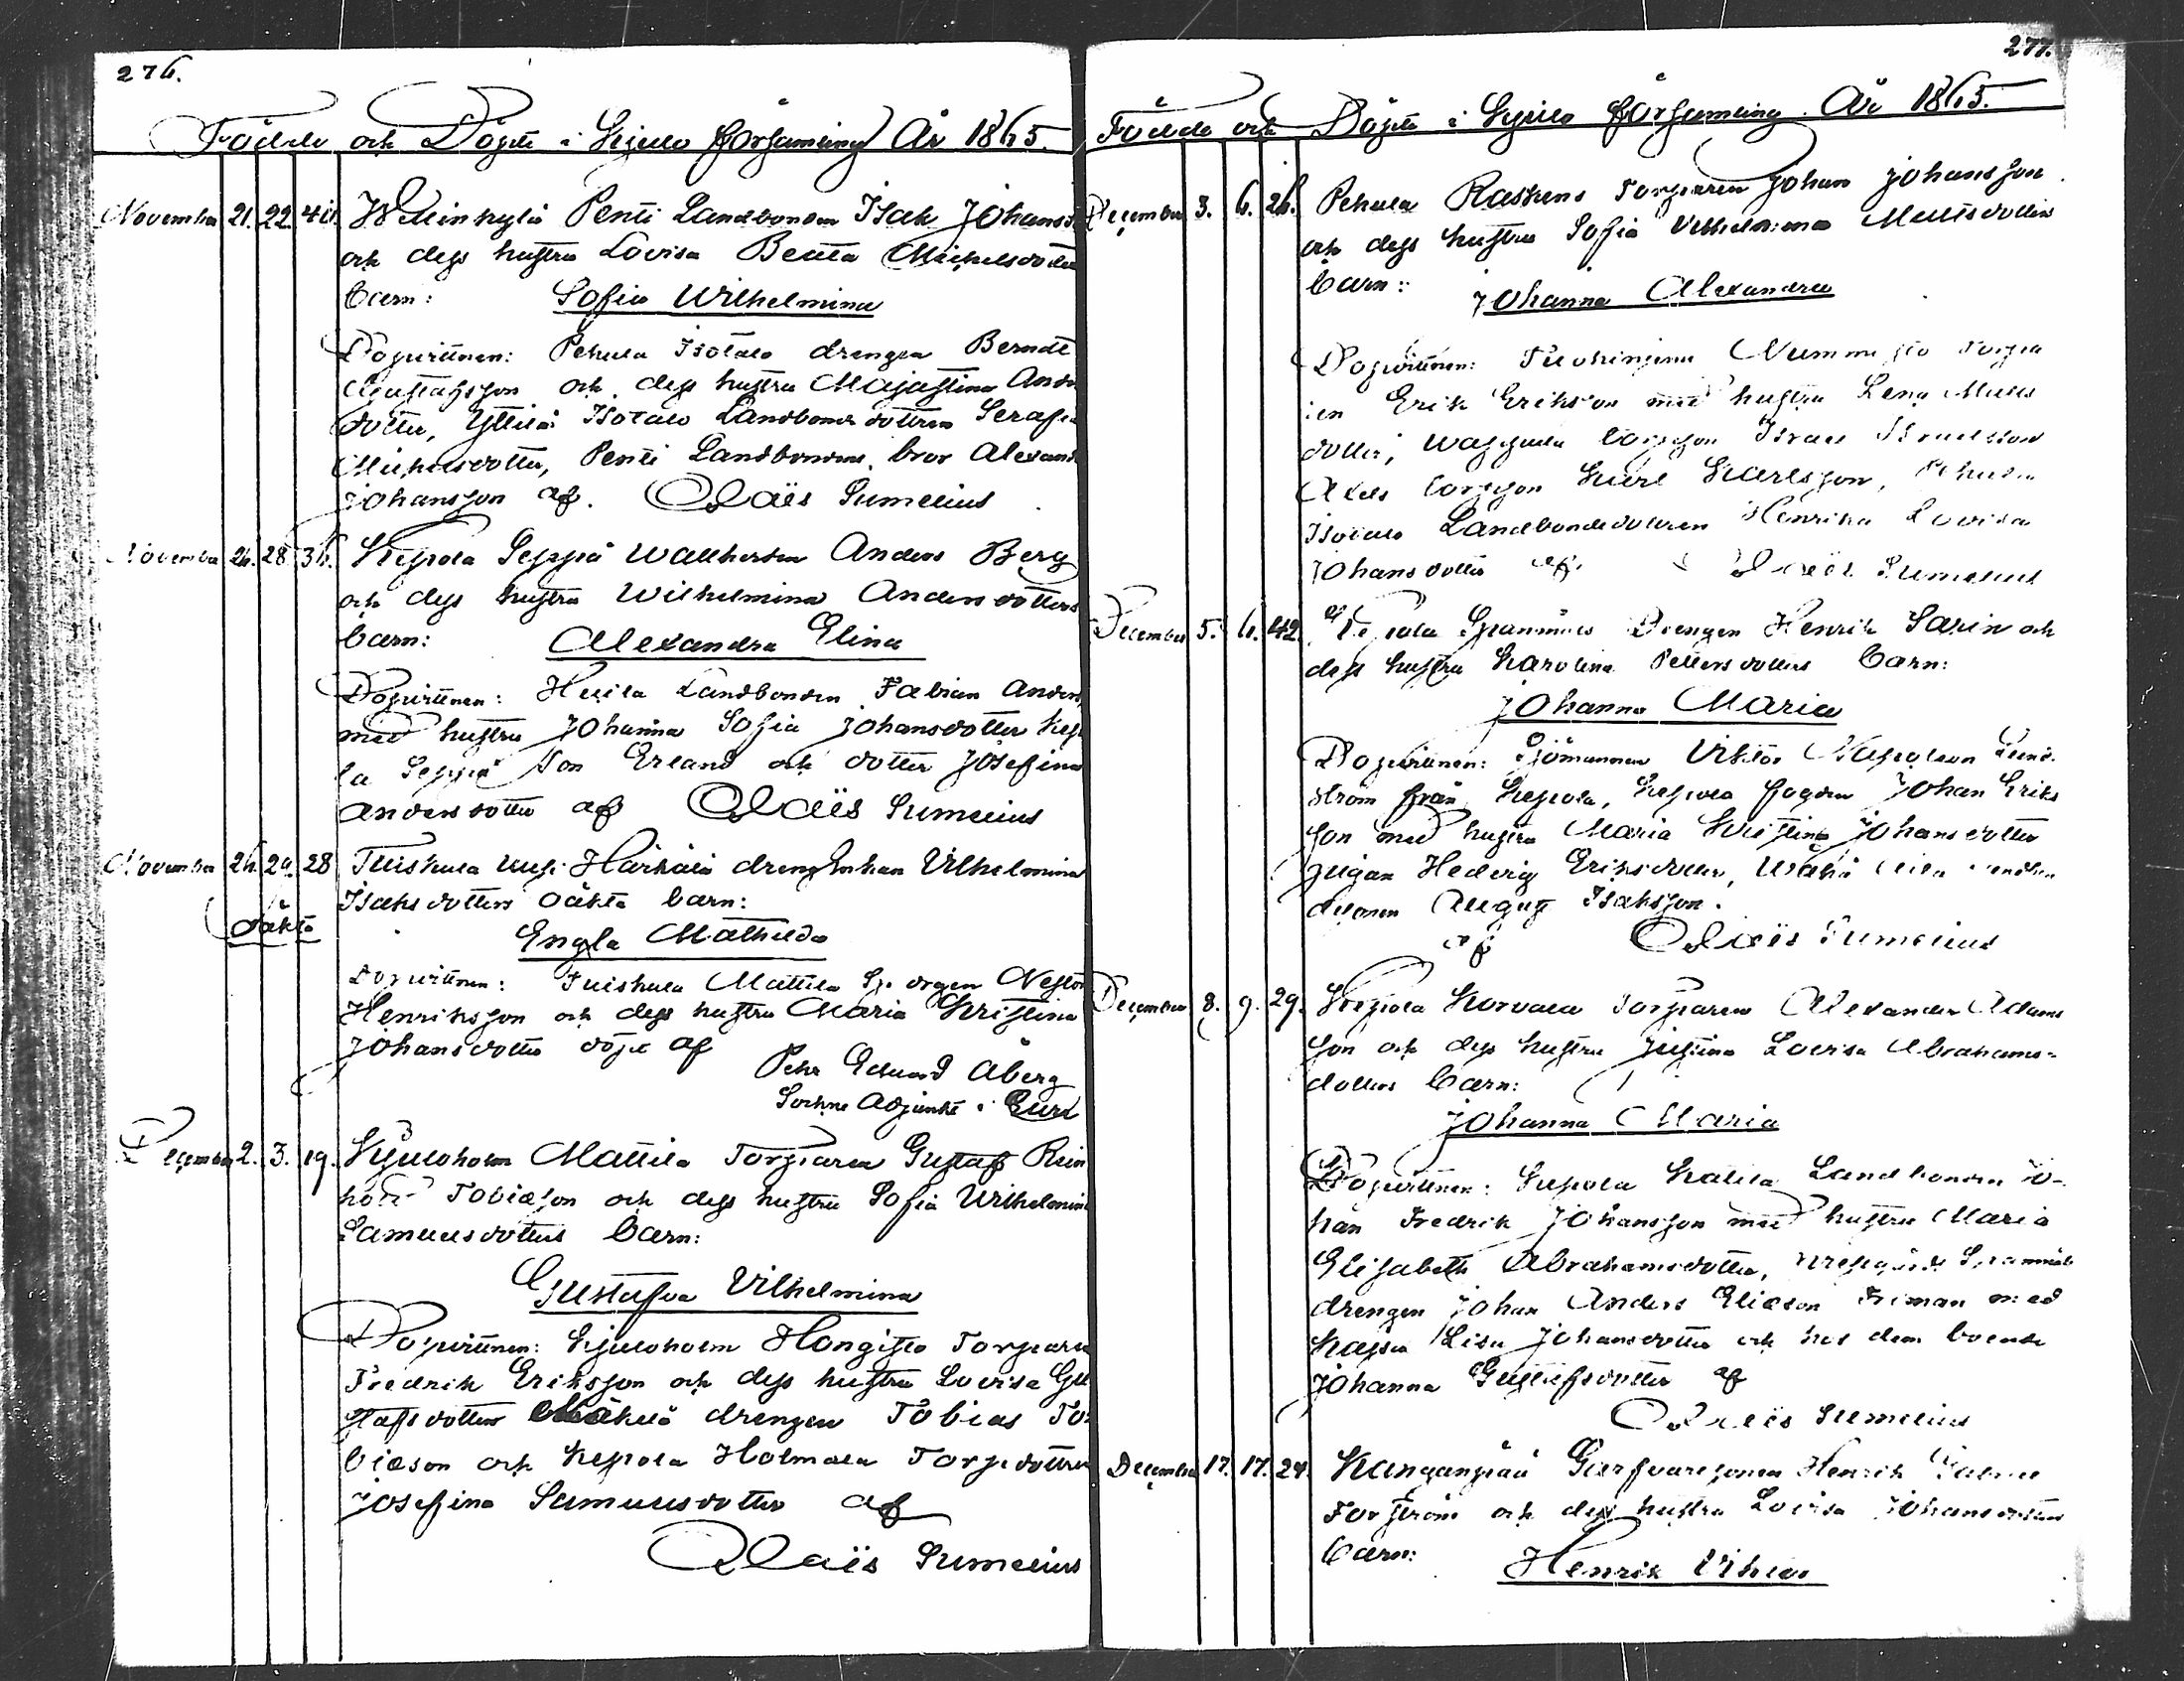 276.
Födde och Döpte i Kjulo församling År 1865.
November 21. 22. 40. Wellinkylä Penti Landbonden Isak Johanss
och dess hustru Lovisa Beata Michelsdotte
barn: Sofia Wilhelmina
Dopvittnen: Pehula Isotalo drengen Berndt
Gustafsson och dess hustru Majastina Anders
dotter, Yttilä Isotalo Landbonde dottren Serafia
Michelsdotter, Penti Landbondens bror Alexand
Johansson af. Claës Sumelius
November 26. 28. 36. Kepola Seppä Wallherden Anders Berg
och dess hustru Wilhelmina Andersdotters
barn: Alexandra Elina
Dopvittnen: Heilä Landbonden Fabian Anders
med hustru Johanna Sofia Johansdotter Kep
la Seppä Son Erland och dotter Josefina
Andersdotter af Claës Sumelius
November 26. 29. 28 Tuiskula Uusi Härkälä drengenkan Vilhelmina
Isaksdotters oäkta barn:
oäkta
Engla Mathilda
Dopvittnen: Tuiskula Mattila drengen Nestor
Henriksson och dess hustru Maria Kristina
Johansdotter döpt af
Pehr Eduard Åberg
Sockne Adjunkt i Eura
December 2. 3. 19. Kjuloholm Mattila Torparen Gustaf Rein
hold Tobiasson och dess hustru Sofia Wilhelmina
Samuelsdotters barn:
Gustafva Vilhelmina
Dopvittnen: Kjuloholm Hongisto Torparen
Fredrik Eriksson och dess hustru Lovisa Gu
stafsdotter Mäkelä drengen Tobias To
biason och Kepola Holmala Torpdottren
Josefina Samuelsdotter af
Claës Sumelius
277.
Födde och Döpte i Kjulo församling År 1865.
December 3. 6. 26. Pehula Raskens Torparen Johan Johansson
och dess hustru Sofia Vilhelmina Mattsdotters
barn: Johanna Alexandra
Dopvittnen: Nummisto Torpa
ren Erik Eriksson med hustru Lena Matts
dotter, torpson Israel Israelsson
torpson Karl Karlsson, Pehula
Isotalo Landbondedottren Henrika Lovisa
Johansdotter af Claës Sumelius
December 5. 6. 42. Kepola Spannmäs Drengen Henrik Sarin och
dess hustru Karolina Pettersdotters barn:
Johanna Maria
Dopvittnen: Sjömannen Viktor Napoleon Lind
ström från Kepola, Kepola fogden Johan Eriks
son med hustru Maria Kristina Johansdotter
pigan Hedvig Eriksdotter,
August Isaksson.
af Claës Sumelius
December 8. 9. 29. Kepola Korvala Torparen Alexander Adams
son och dess hustru Justina Lovisa Abrahams-
dotters barn:
Johanna Maria
Dopvittnen: Kepola Katila Landbonden Jo-
han Fredrik Johansson med hustru Maria
Elisabeth Abrahamsdotter,
drengen Johan Anders Eliason Friman med
Kajsa Lisa Johansdotter och hos dem boende
Johanna Gustafsdotter af
Claës Sumelius
December 17. 17. 24. Kanganpää Garfvaresonen Henrik
Forsström och dess hustru Lovisa Johansdotters
barn: Henrik Vihelm